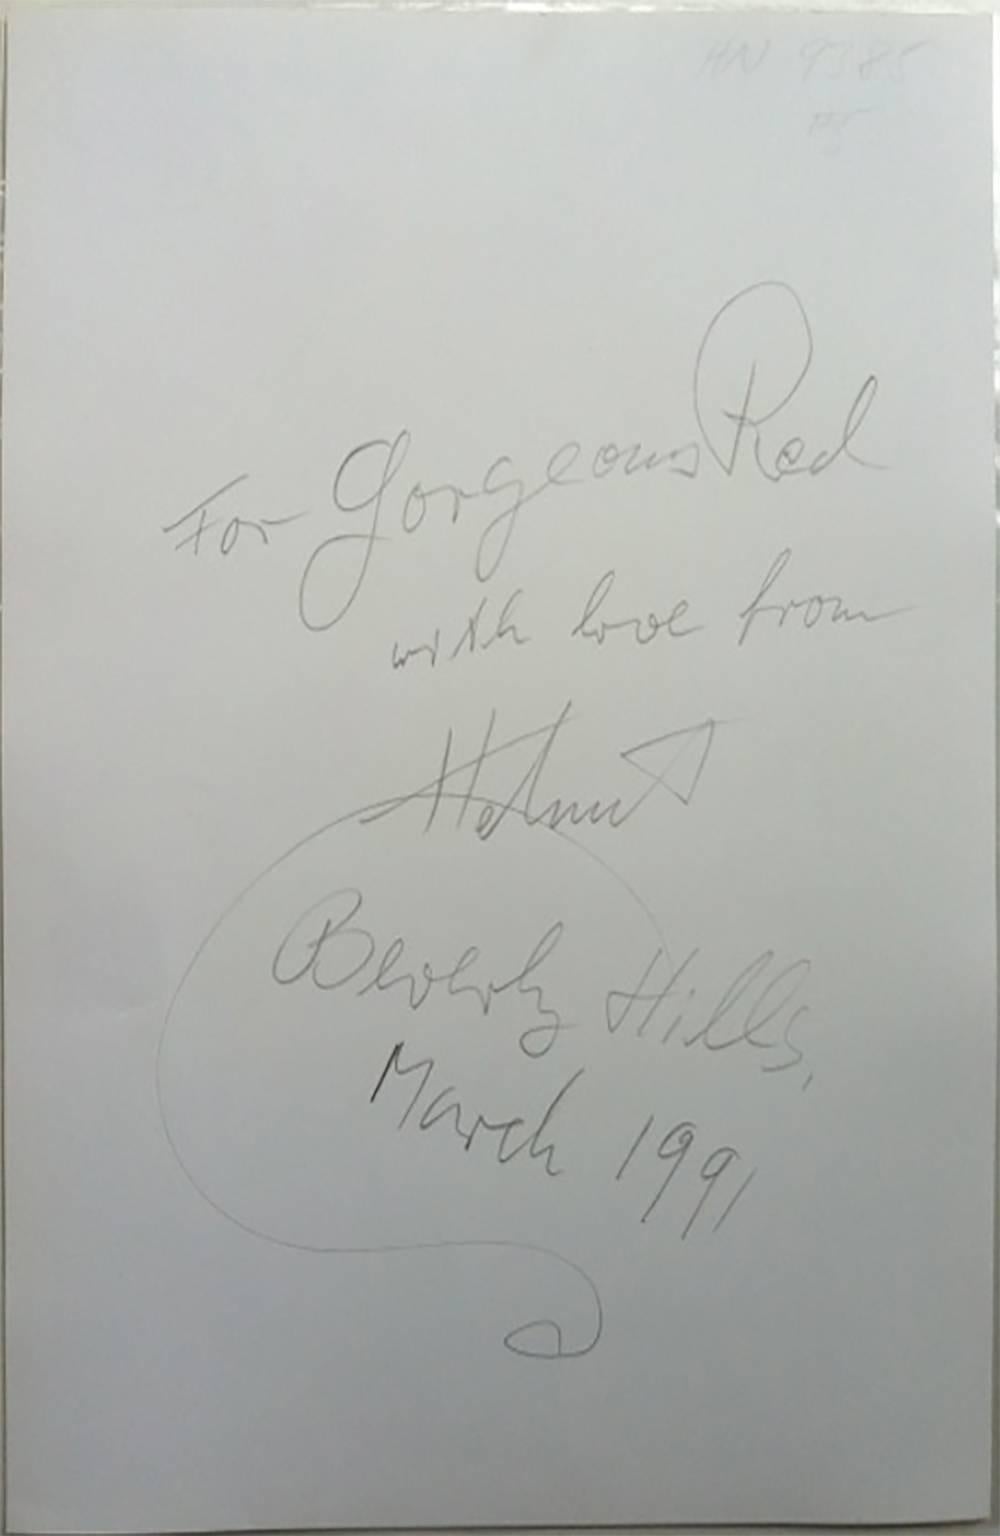 HN 9385
For Gorgeous Red
with love from
Helmut
Beverly Hills,
March 1991